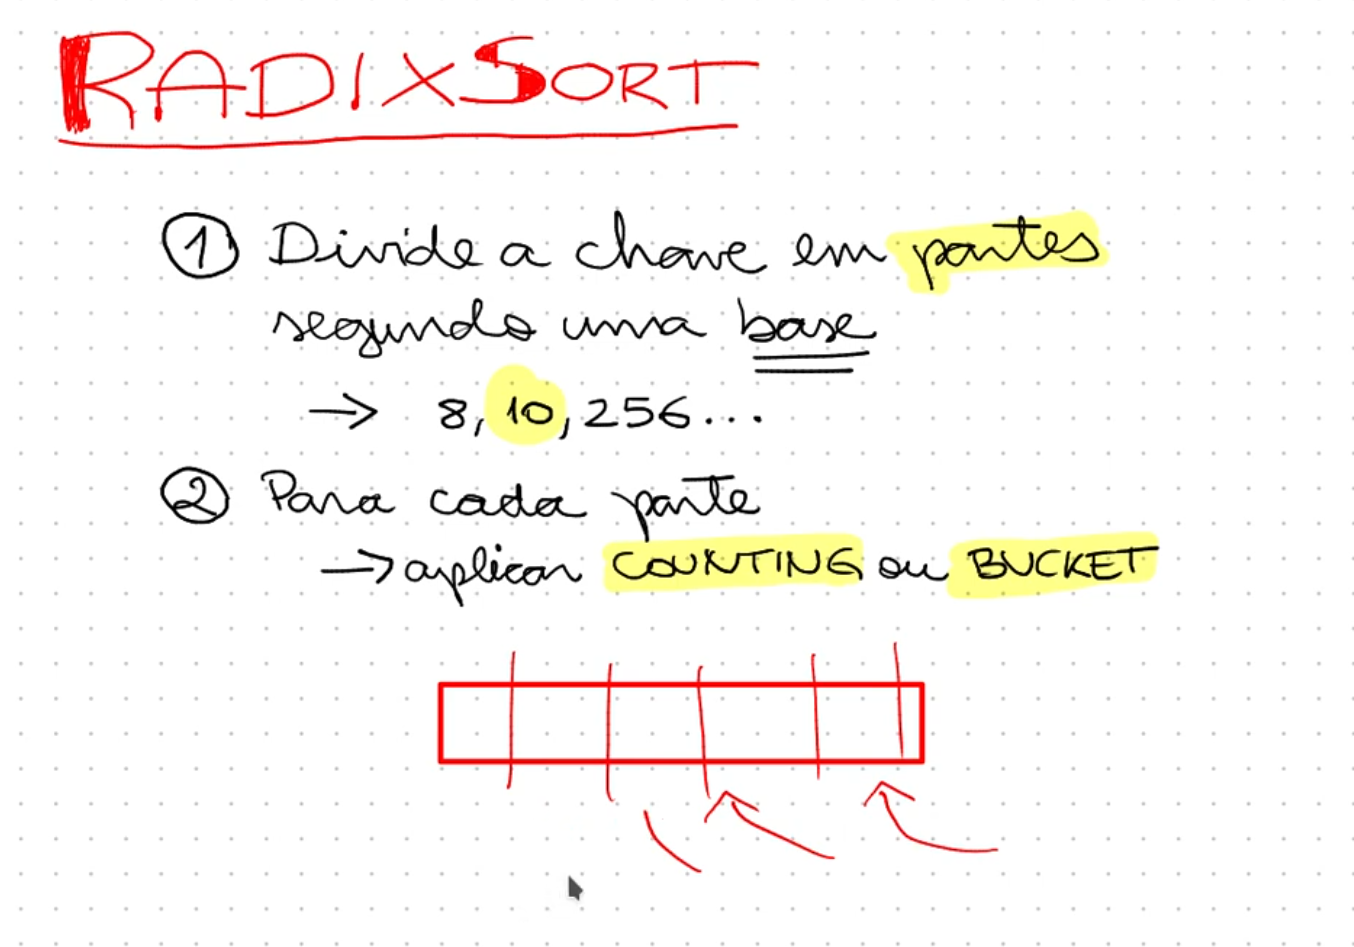 RADIXSORT
① Divide a chave em partes
segundo uma base
→ 8, 10, 256...
② Para cada parte
→ aplicar COUNTING ou BUCKET